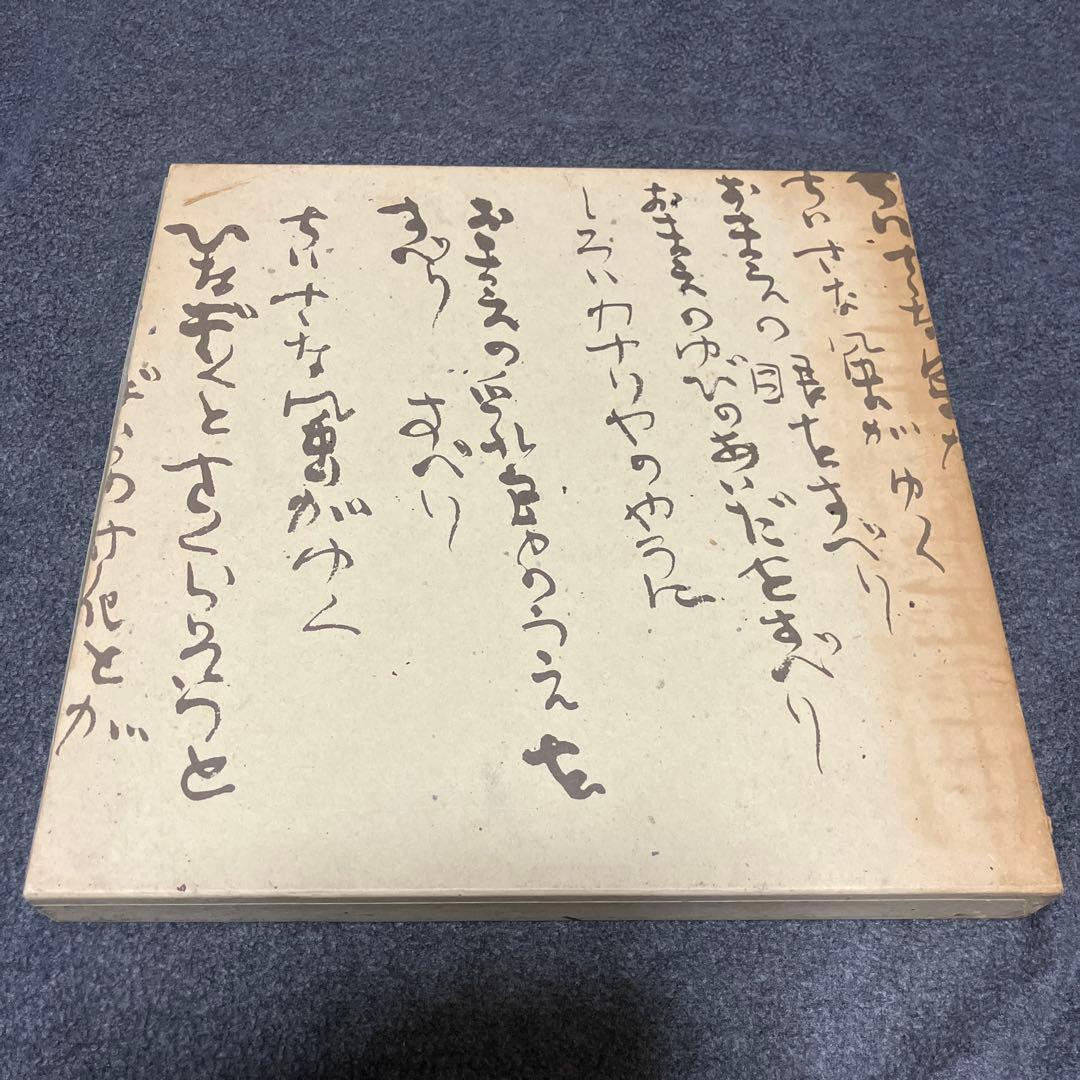 ちいさな風が
ちいさな風がゆく
おまえの目屠をすべり
おまえのゆびのあいだをすべり
しろいカナリヤのやうに
おまえの乳房のうえを
すべり すべり
ちいさな風がゆく
ひなぎくとさくらさうと
のけ花とが